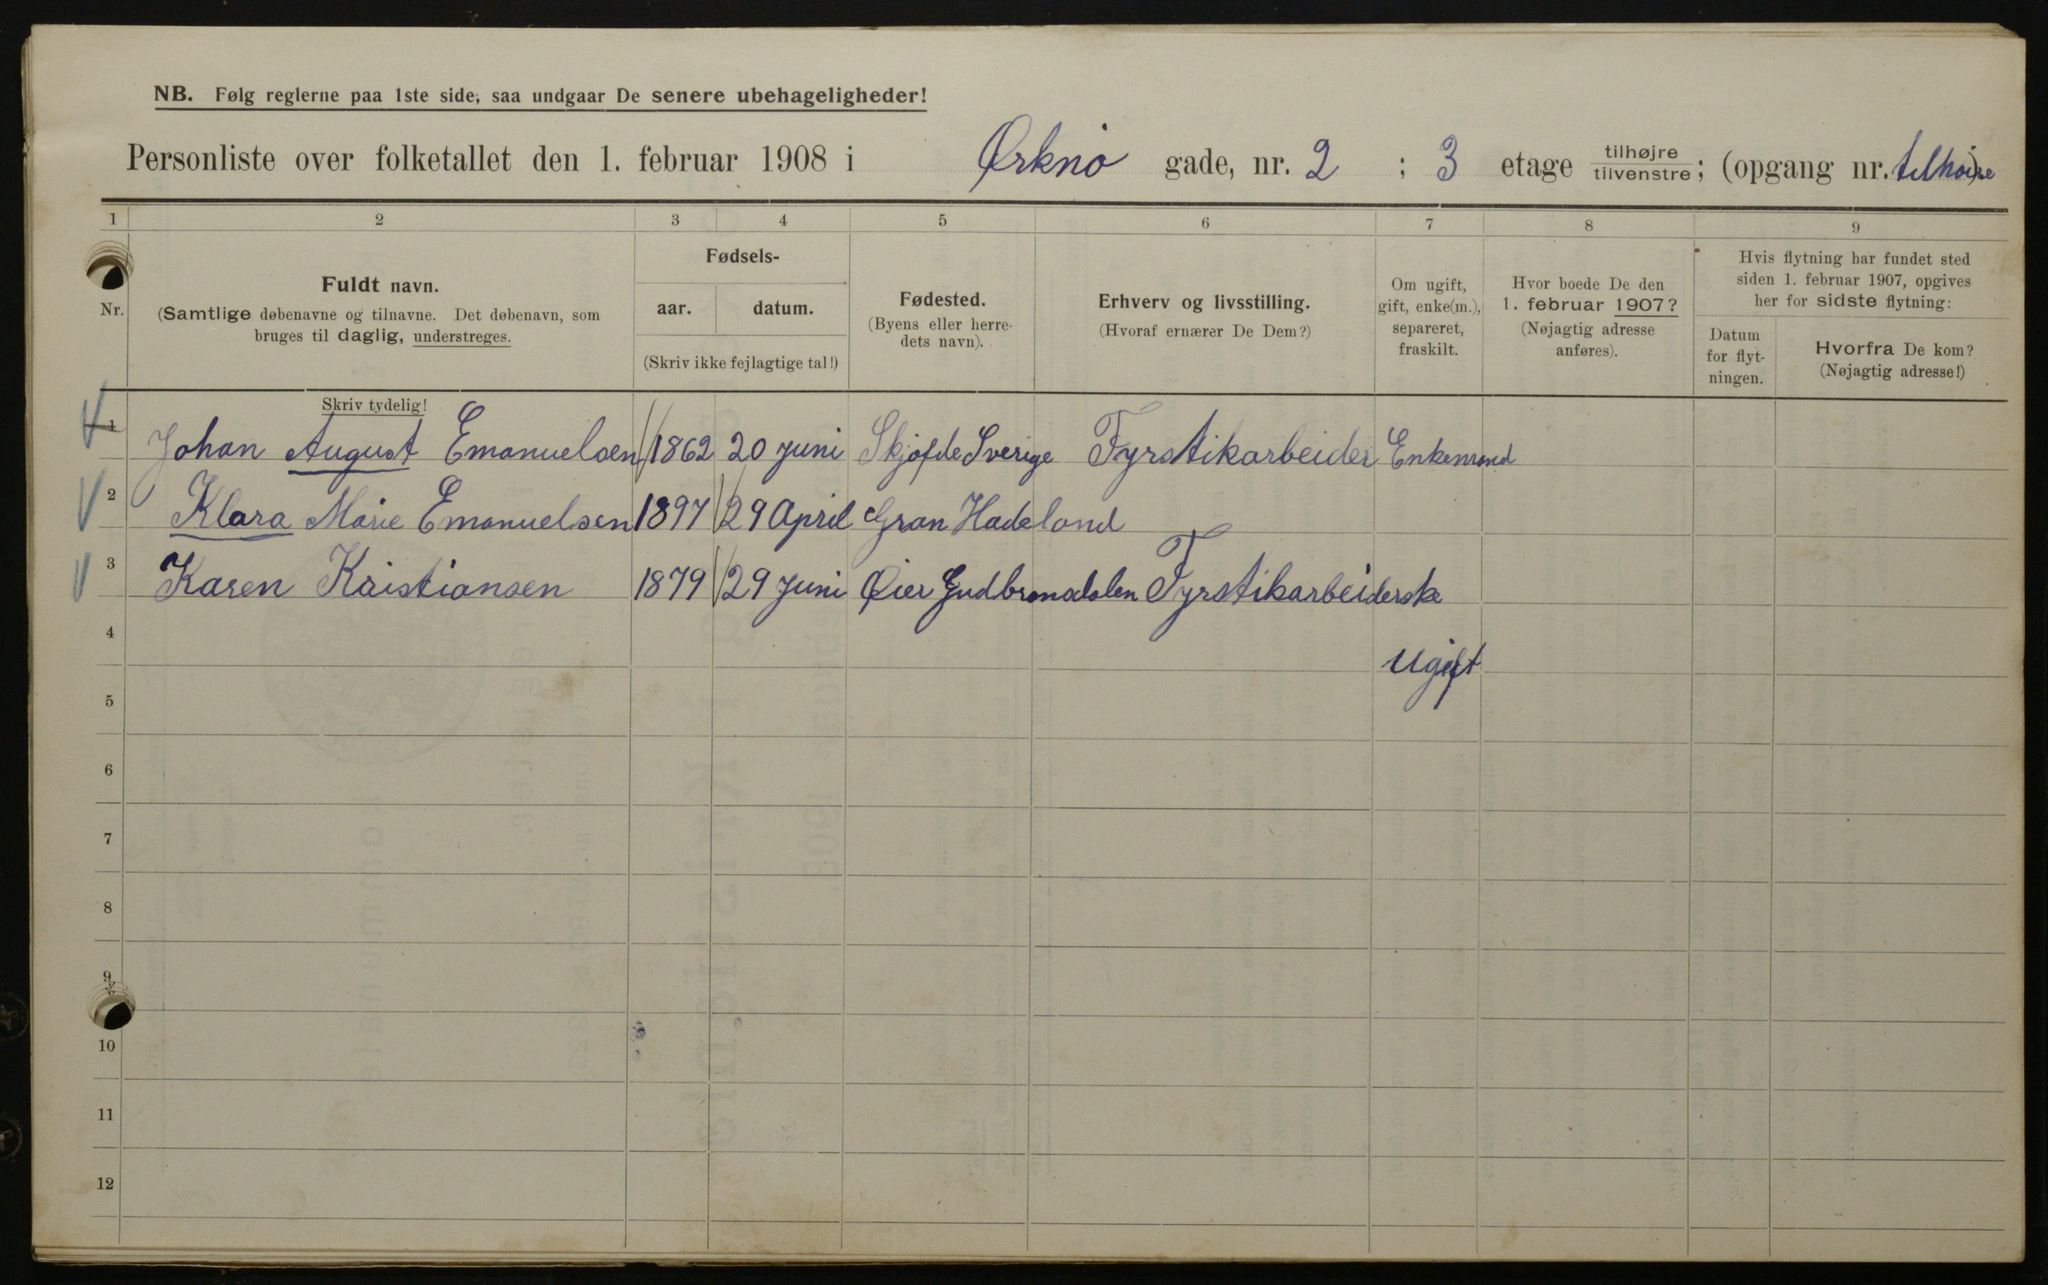 NB. Følg reglerne paa 1ste side, saa undgaar De senere ubehageligheder!
Personliste over folketallet den 1. februar 1908 i Ørknø gade, nr. 2 ; 3 etage tilhøjre / tilvenstre ; (opgang nr. tilhøire)
1 2 3 4 5 6 7 8 9
Nr.
Fuldt navn.
(Samtlige døbenavne og tilnavne. Det døbenavn, som
bruges til daglig, understreges.
Skriv tydelig!
Fødsels-
aar. datum.
(Skriv ikke fejlagtige tal!)
Fødested.
(Byens eller herre-
dets navn).
Erhverv og livsstilling.
(Hvoraf ernærer De Dem?)
Om ugift,
gift, enke(m.),
separeret,
fraskilt.
Hvor boede De den
1. februar 1907?
(Nøjagtig adresse
anføres).
Hvis flytning har fundet sted
siden 1. februar 1907, opgives
her for sidste flytning:
Datum
for flyt-
ningen.
Hvorfra De kom?
(Nøjagtig adresse!)
1 Johan August Emanuelsen 1862 20 Juni Skjøfde Sverige Fyrstikarbeider Enkemand
2 Klara Marie Emanuelsen 1897 29 April Gran Hadeland
3 Karen Kristiansen 1879 29 Juni Øier Gudbransdalen Fyrstikarbeiderske
4 ugift
5
6
7
8
9
10
11
12